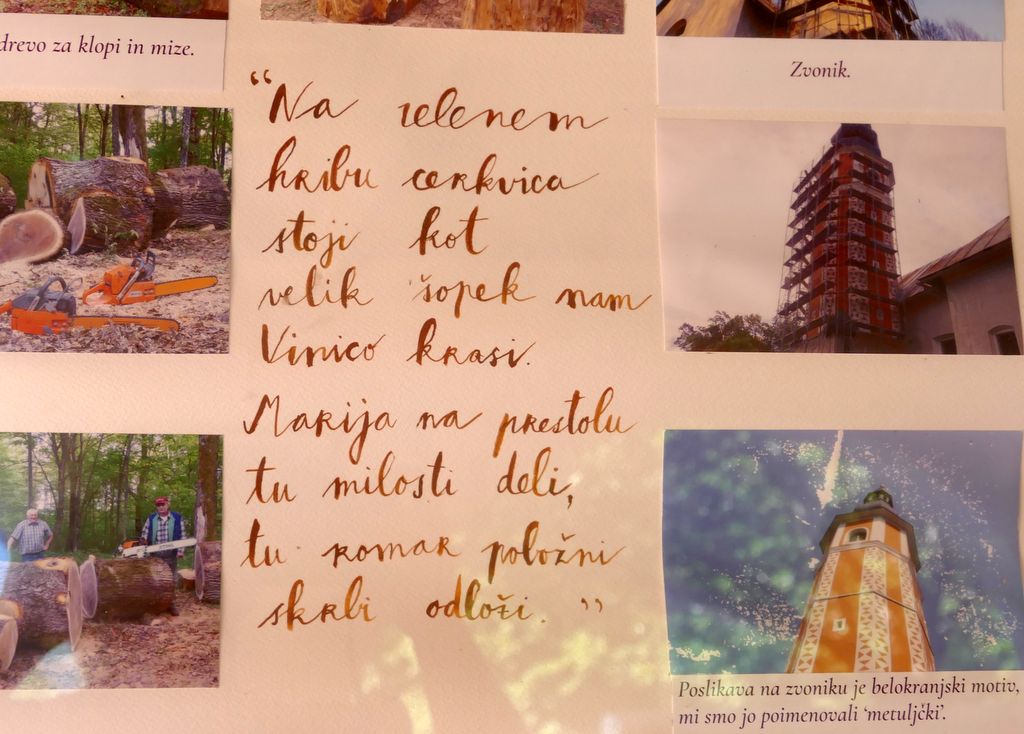 drevo za klopi in mize.
Zvonik.
“Na zelenem
hribu cerkvica
stoji kot
velik šopek nam
Vinico krasi.
Marija na prestolu
tu milosti deli,
tu romar položni
skrbi odloži.”
Poslikava na zvoniku je belokranjski motiv,
mi smo jo poimenovali ‘metuljčki’.